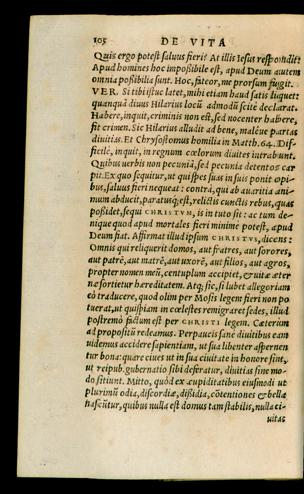 105 DE VITA
Quis ergo potest saluus fieri? At illis Iesus respondit:
Apud homines hoc impoßibile est, apud Deum autem
omnia poßibilia sunt. Hoc, fateor, me prorsum fugit.
VER. Si tibi istuc latet, mihi etiam haud satis liquet:
quanquã diuus Hilarius locũ admodũ scitè declarat.
Habere, inquit, criminis non est, sed nocenter habere,
fit crimen. Sic Hilarius alludit ad bene, maleùe partas
diuitias. Et Chrysostomus homilia in Matth. 64. Dif-
ficilè, inquit, in regnum cœlorum diuites intrabunt.
Quibus uerbis non pecuniã, sed pecunia detentos car
pit. Ex quo sequitur, ut qui spes suas in suis ponit opi
bus, saluus fieri nequeat: contrà, qui ab auaritia ani
mum abducit, paratusq́; est, relictis cunctis rebus, quas
poßidet, sequi CHRISTVM, is in tuto sit: ac tum de-
nique quod apud mortales fieri minime potest, apud
Deum fiat. Affirmat illud ipsum CHRISTVS, dicens:
Omnis qui reliquerit domos, aut fratres, aut sorores,
aut patrẽ, aut matrẽ, aut uxorẽ, aut filios, aut agros,
propter nomen meũ, centuplum accipiet, & uitæ æter
næ sortietur hæreditatem. Atq́; sic, si lubet allegoriam
eò traducere, quod olim per Mosis legem fieri non po
tuerat, ut quispiam in cœlestes remigraret sedes, illud
postremò factum est per CHRISTI legem. Cæterùm
ad propositũ redeamus. Perpaucis sanè diuitibus eam
uidemus accidere sapientiam, ut sua libenter aspernen
tur bona: quare ciues ut in sua ciuitate in honore sint,
ut reipub. gubernatio sibi deferatur, diuitias sine mo-
do sitiunt. Mitto, quòd ex cupiditatibus eiusmodi ut
plurimũ odia, discordiæ, dißidia, cõtentiones & bella
nascũtur, quibus nulla est domus tam stabilis, nulla ci-
uitas